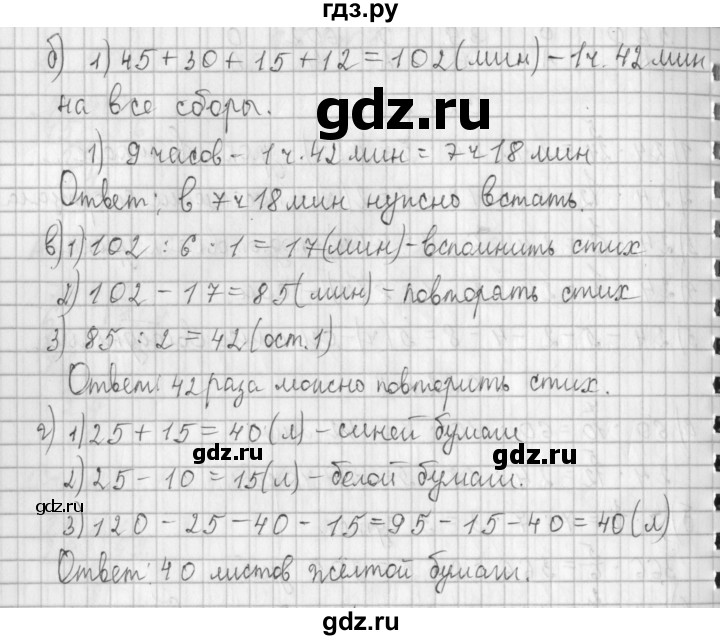 гдз.ру
б) 1) 45 + 30 + 15 + 12 = 102 (мин) - 1ч. 42 мин
на все сборы.
gdz.ru
1) 9 часов - 1 ч. 42 мин = 7 ч 18 мин
Ответ: в 7 ч 18 мин нужно встать.
в) 1) 102 : 6 · 1 = 17 (мин) - вспомнить стих
2) 102 - 17 = 85 (мин) - повторять стих
3) 85 : 2 = 42 (ост. 1)
Ответ: 42 раза можно повторить стих.
г) 1) 25 + 15 = 40 (л) - синей бумаги
gdz.ru gdz.ru
2) 25 - 10 = 15 (л) - белой бумаги.
gdz.ru
3) 120 - 25 - 40 - 15 = 95 - 15 - 40 = 40 (л)
Ответ: 40 листов жёлтой бумаги.
gdz.ru